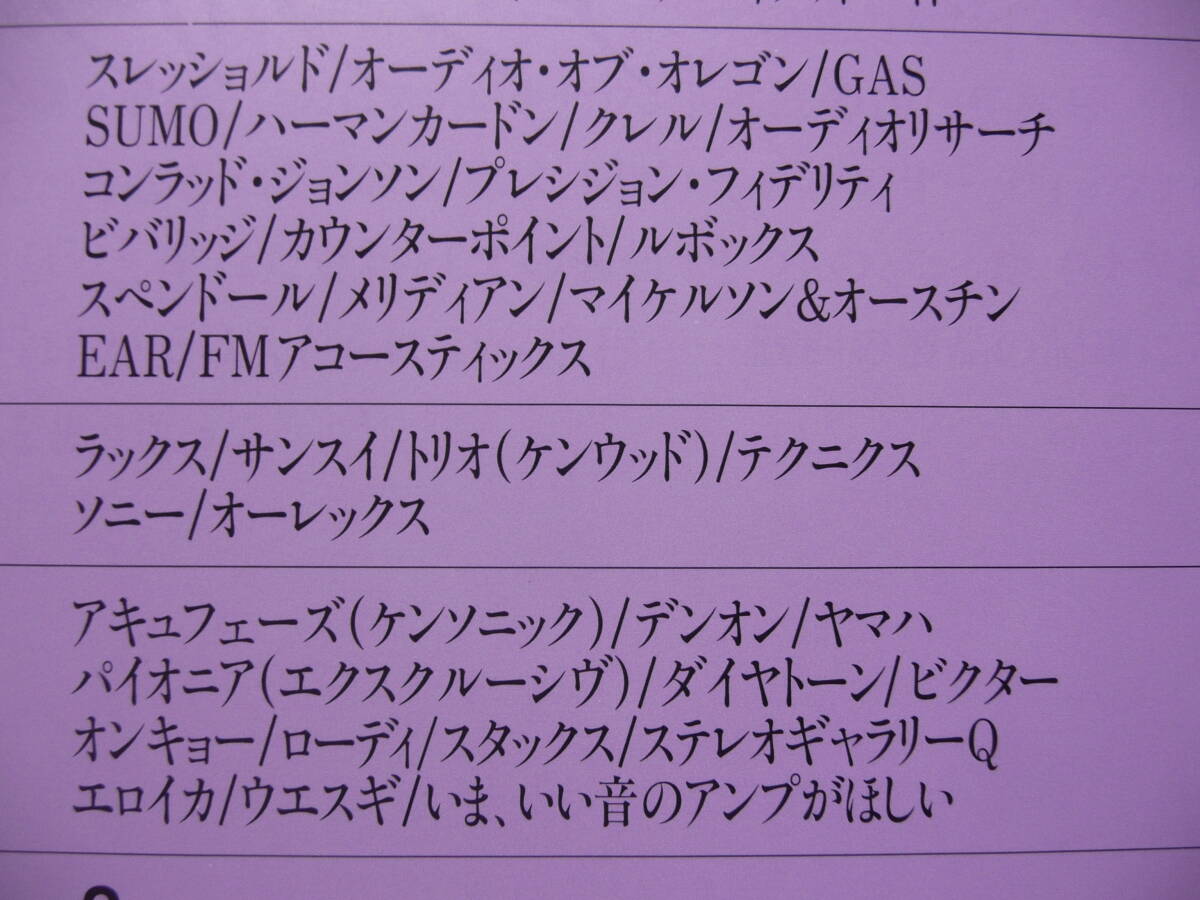 スレッショルド/オーディオ・オブ・オレゴン/GAS
SUMO/ハーマンカードン/クレル/オーディオリサーチ
コンラッド・ジョンソン/プレシジョン・フィデリティ
ビバリッジ/カウンターポイント/ルボックス
スペンドール/メリディアン/マイケルソン&オースチン
EAR/FMアコースティックス
ラックス/サンスイ/トリオ(ケンウッド)/テクニクス
ソニー/オーレックス
アキュフェーズ(ケンソニック)/デンオン/ヤマハ
パイオニア(エクスクルーシヴ)/ダイヤトーン/ビクター
オンキョー/ローディ/スタックス/ステレオギャラリーQ
エロイカ/ウエスギ/いま、いい音のアンプがほしい